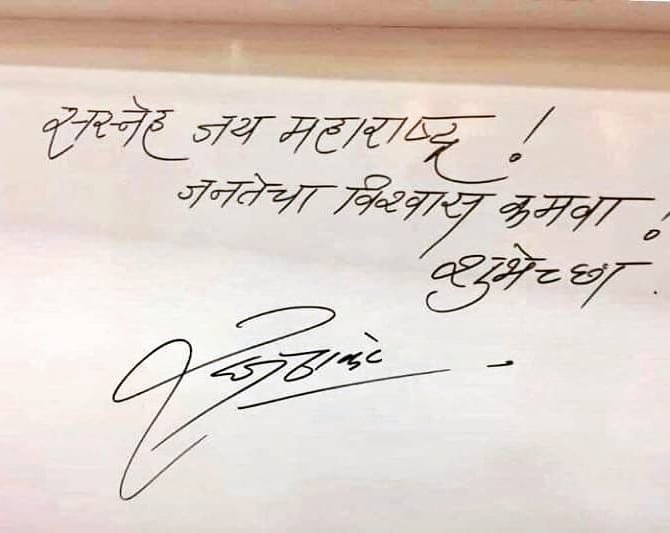 सस्नेह जय महाराष्ट्र !
जनतेचा विश्वास कमवा !
शुभेच्छा.